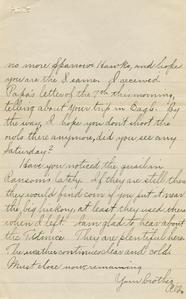 no more Sparrow Hawks, and hope
you are the same. I received
Papa's letter of the 7th this morning,
telling about your trip in Bag6. By
the way, I hope you don't shoot the
owls there anymore, did you see any
Saturday?
Have you noticed the quail in
Ransoms lately. If they are still there
they would find corn if you put it near
the big hickory, at least they used there
when I left. I am glad to hear about
the. They are plentiful here.
The weather continues clear and cold.
Must close now, remaining
Your brother